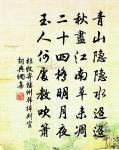 青山隱隱水迢迢
秋盡江南草未凋
二十四橋明月夜
玉人何處教吹簫
杜牧寄揚州韓綽判官
詞典網集